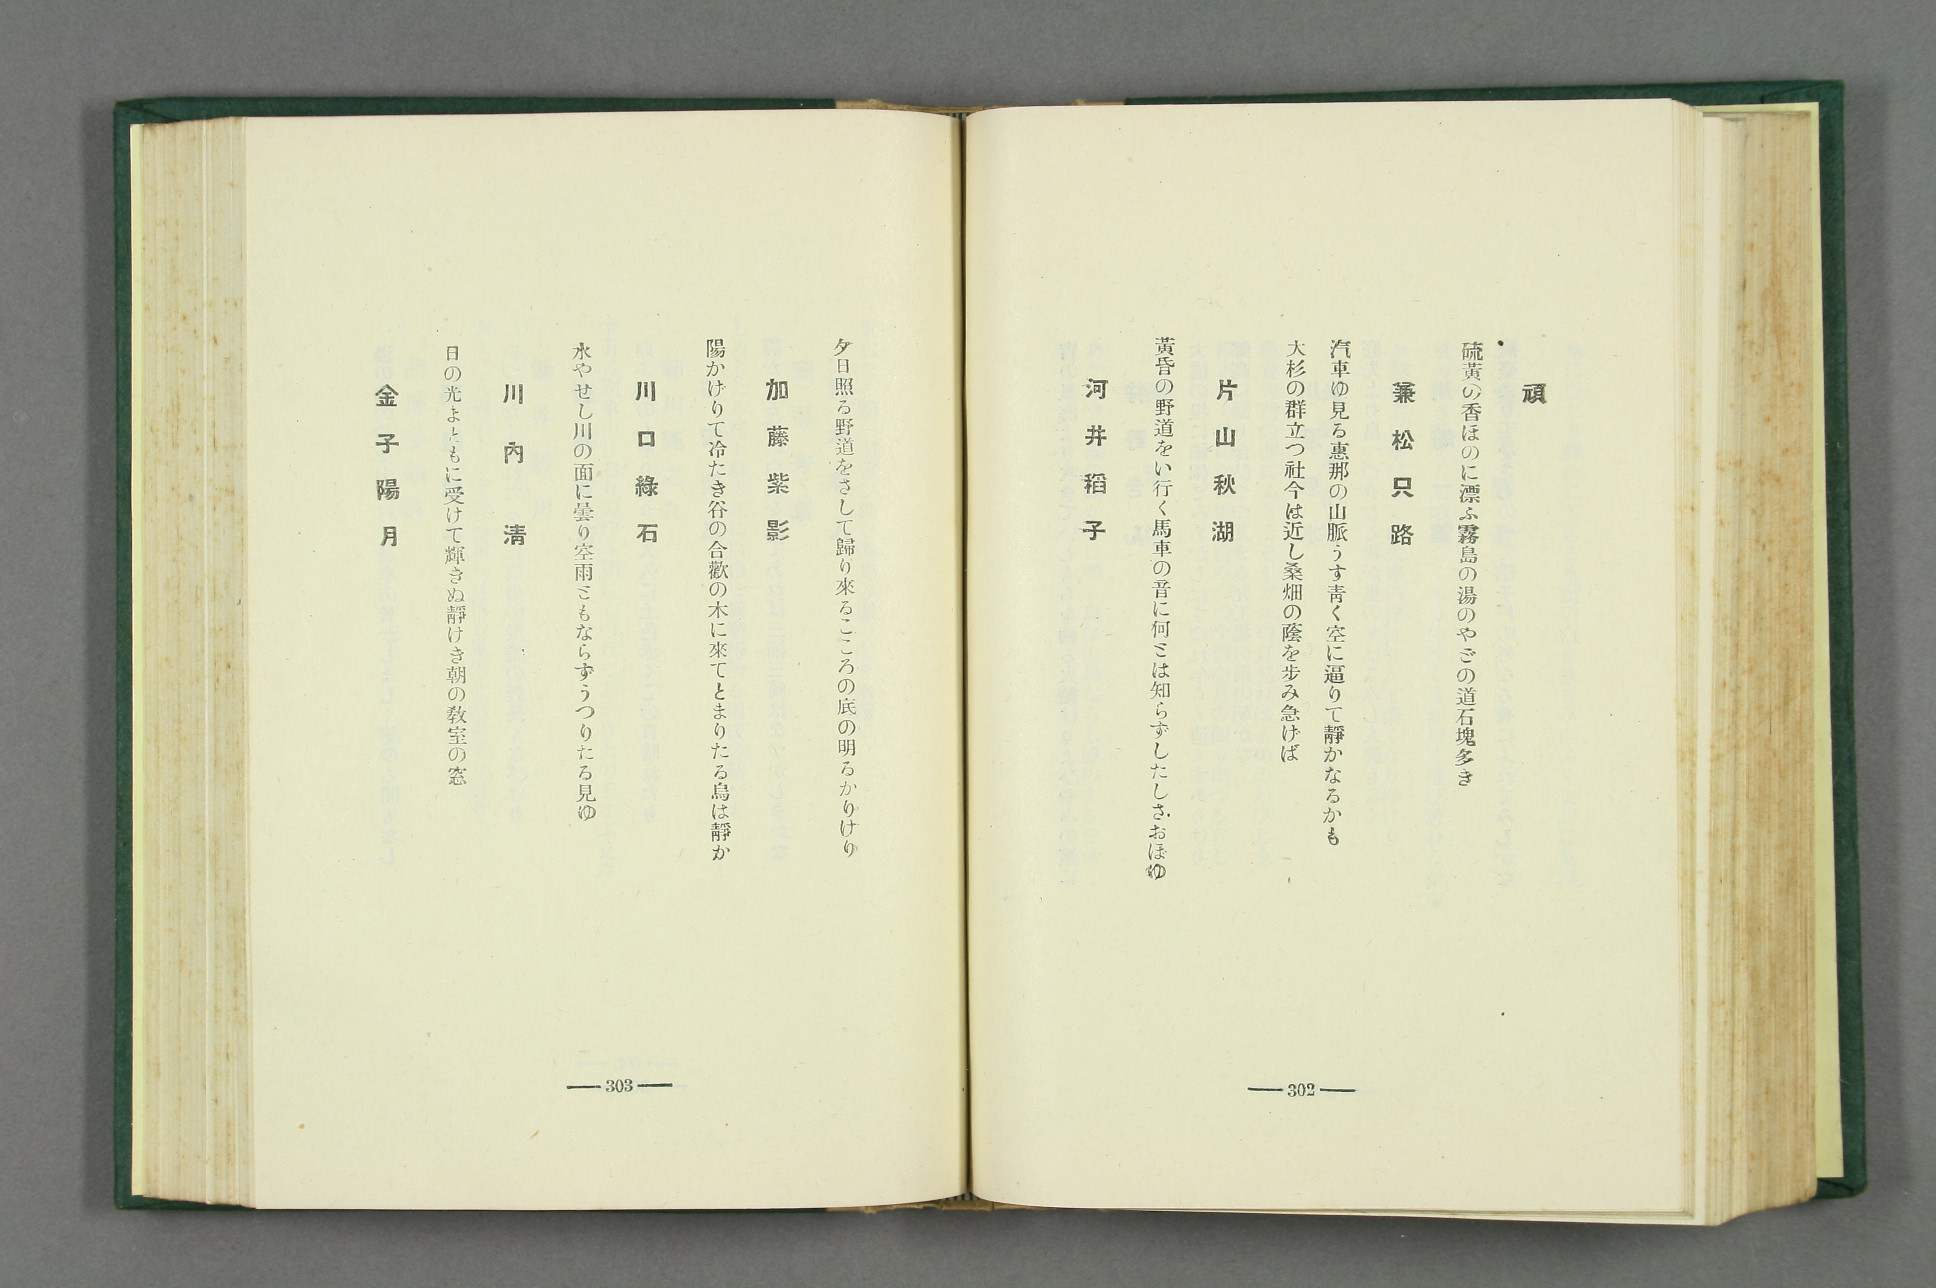 頑
硫黄の香ほのに漂ふ霧島の湯のやどの道石塊多き
兼松只路
汽車ゆ見る惠那の山脈うす靑く空に逼りて靜かなるかも
大杉の群立つ社今は近し桑畑の蔭を步み急げば
片山秋湖
黃昏の野道をい行く馬車の音に何とは知らずしたしさおぼゆ
河井稻子
302
夕日照る野道をさして歸り來るこころの底の明るかりけり
加藤紫影
陽かけりて冷たき谷の合歡の木に來てとまりたる鳥は靜か
川口綠石
水やせし川の面に曇り空雨ともならずうつりたる見ゆ
川內淸
日の光よともに受けて輝きぬ靜けき朝の敎室の窓
金子陽月
303